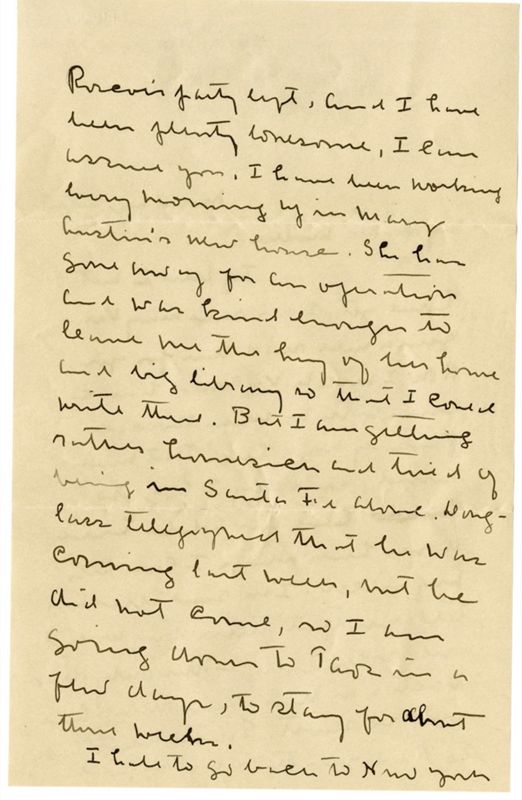 Roscoe's party left, and I have
been plenty lonesome, I can
assure you. I have been working
every morning up in Mary
Austin's new house. She has
gone away for an operation
and was kind enough to
leave me the key of her house
and big library so that I could
write there. But I am getting
rather homesick and tired of
being in Santa Fé alone. Doug-
lass telegraphed that he was
coming last week, but he
did not come, so I am
going down to Taos in a
few days, to stay for about
three weeks.
I hate to go back to New York